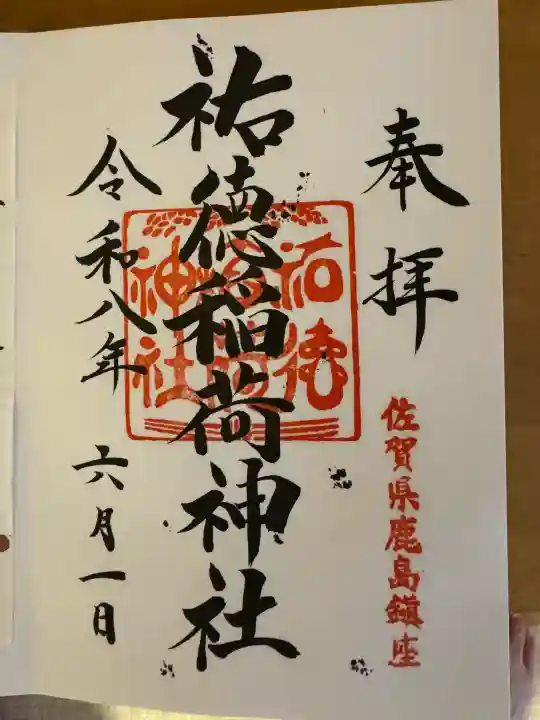 奉拝
佐賀県鹿島鎮座
祐徳稲荷神社
祐徳
神社
令和八年 六月一日